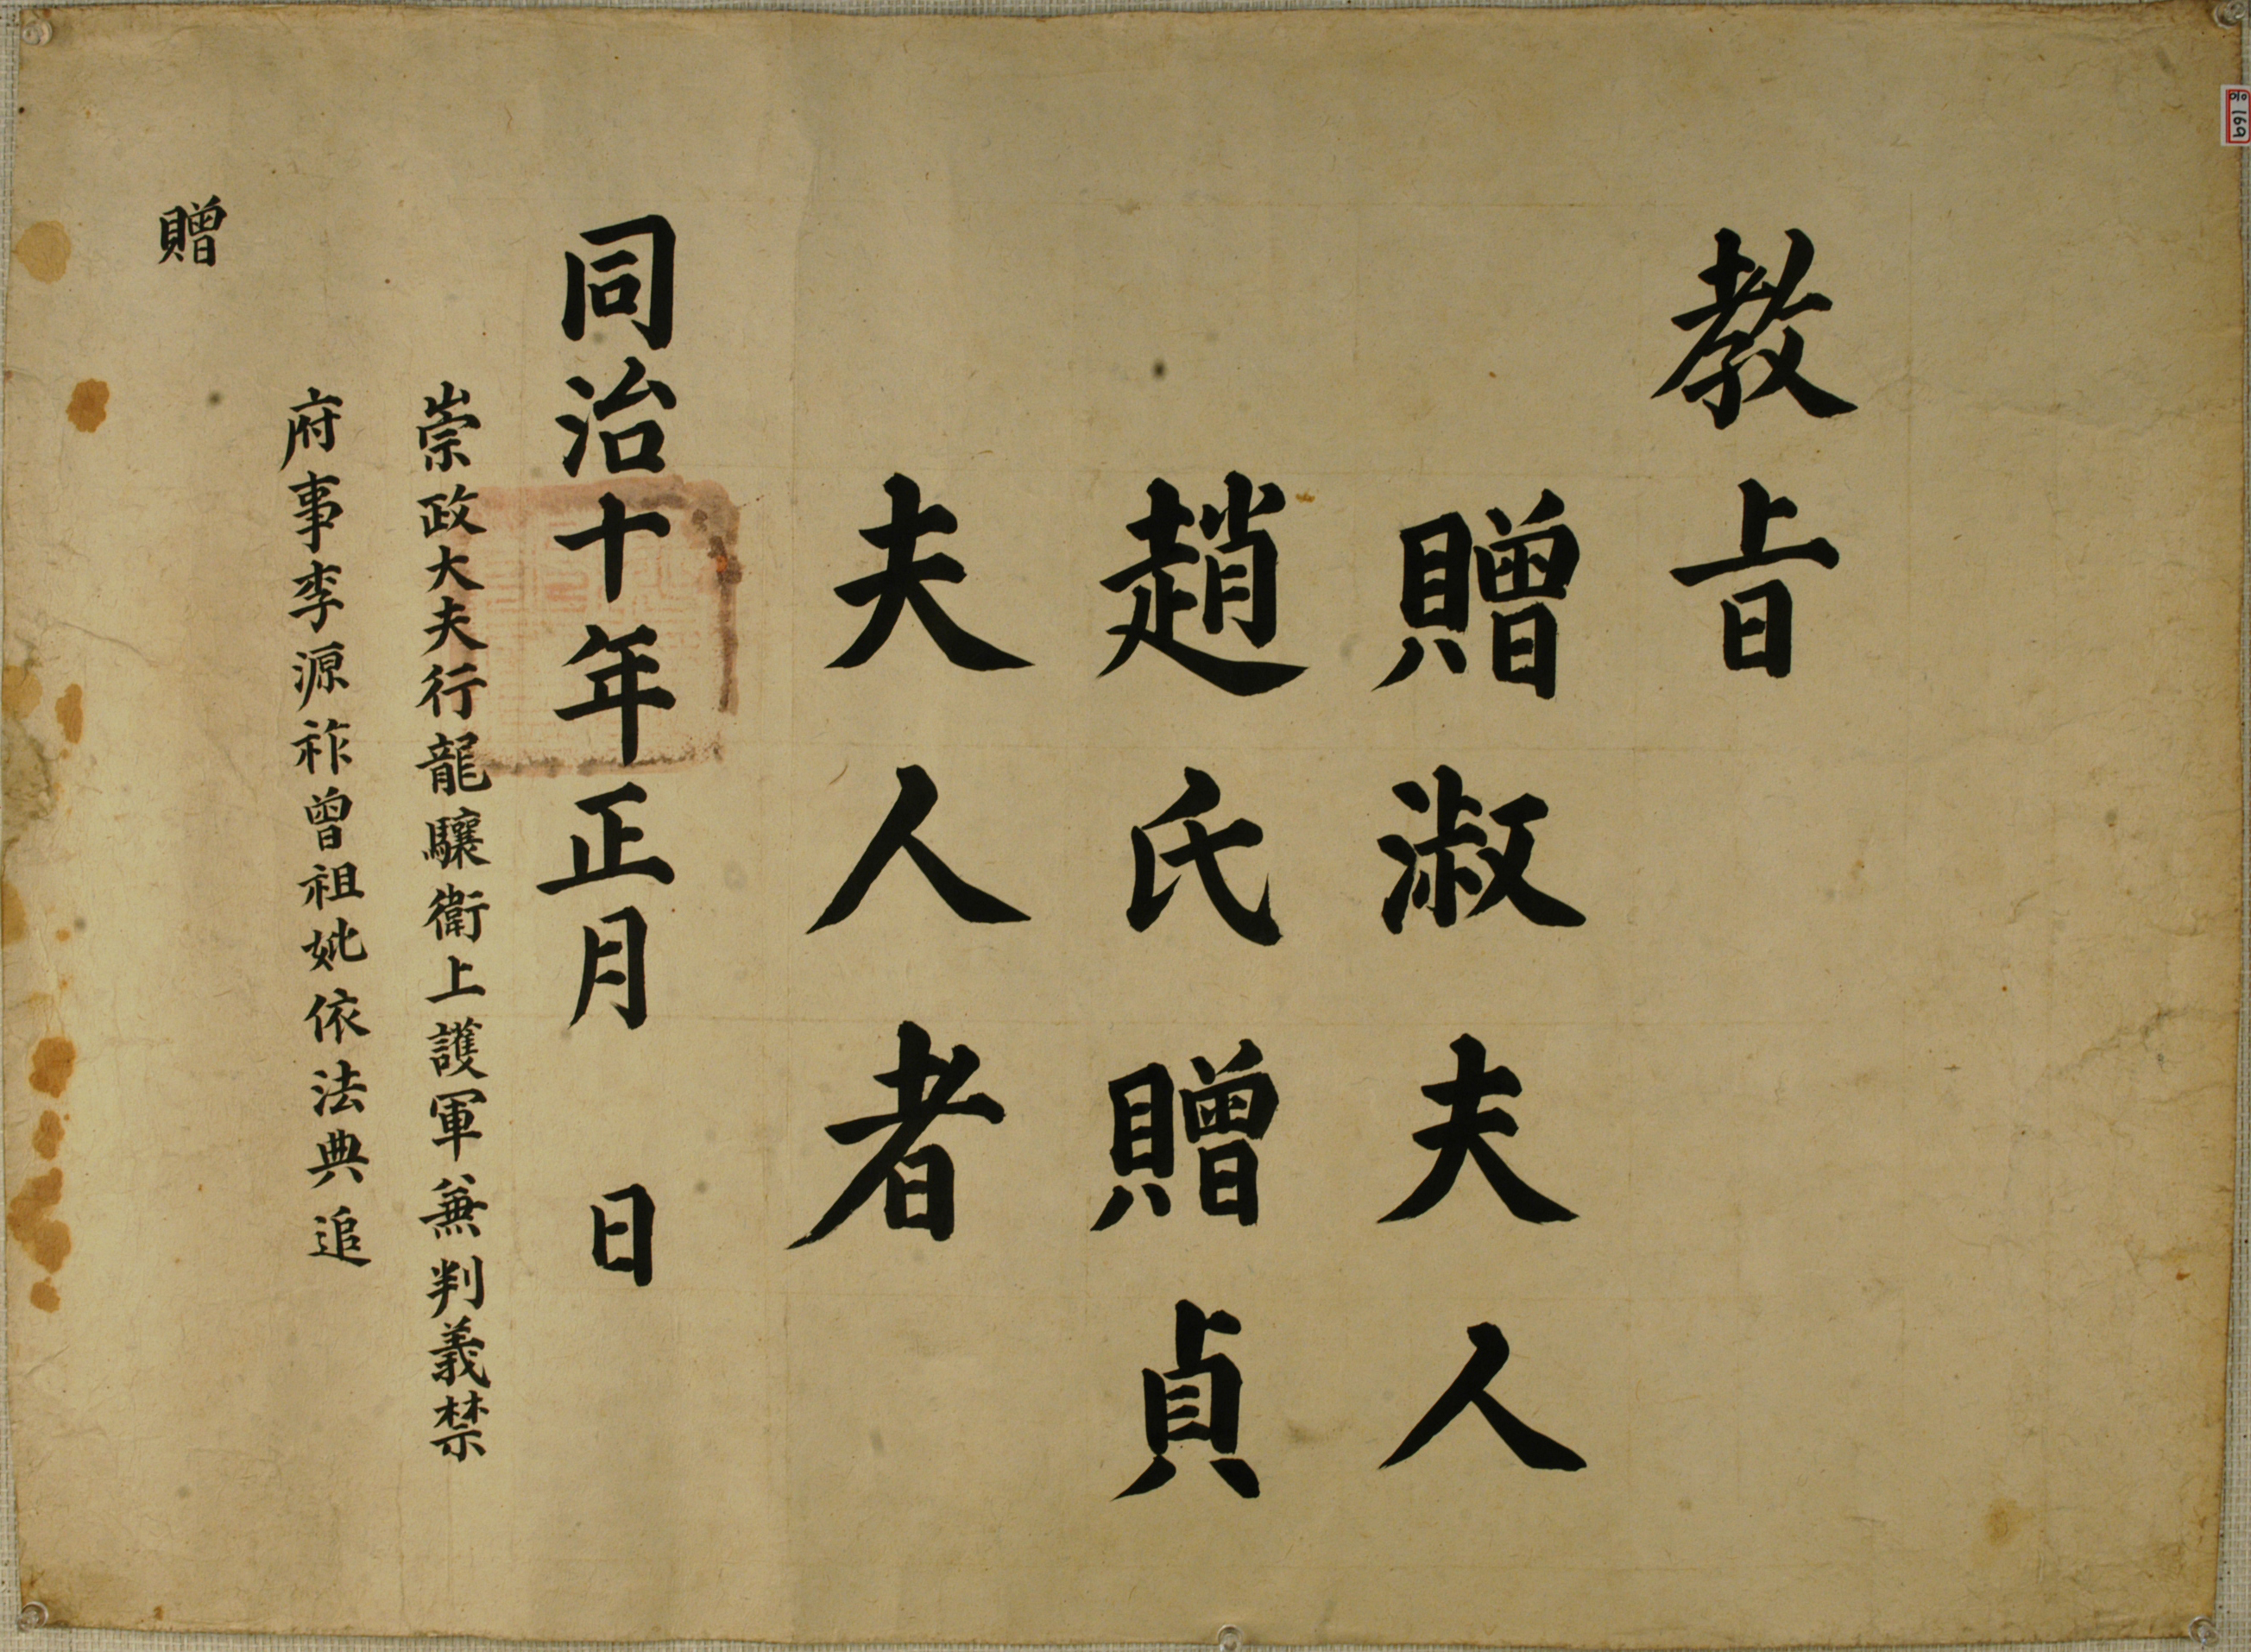 教旨
贈淑夫人
趙氏贈貞
夫人者
同治十年正月 日
崇政大夫行龍驤衛上護軍兼判義禁
府事李源祚曾祖妣依法典追
贈
169